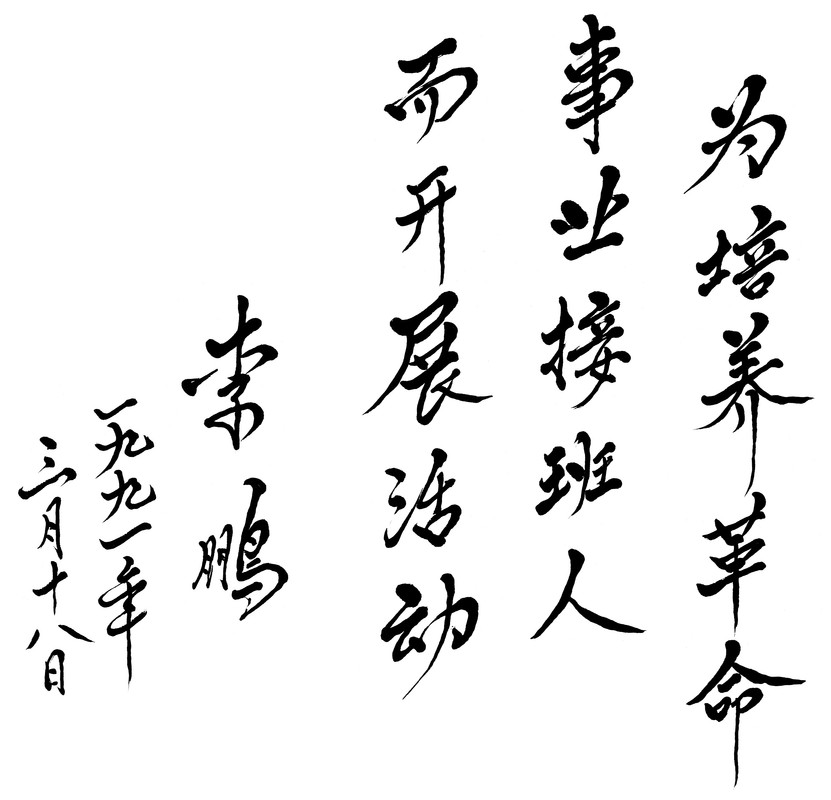 为培养革命
事业接班人
而开展活动
李鹏
一九九一年
三月十八日